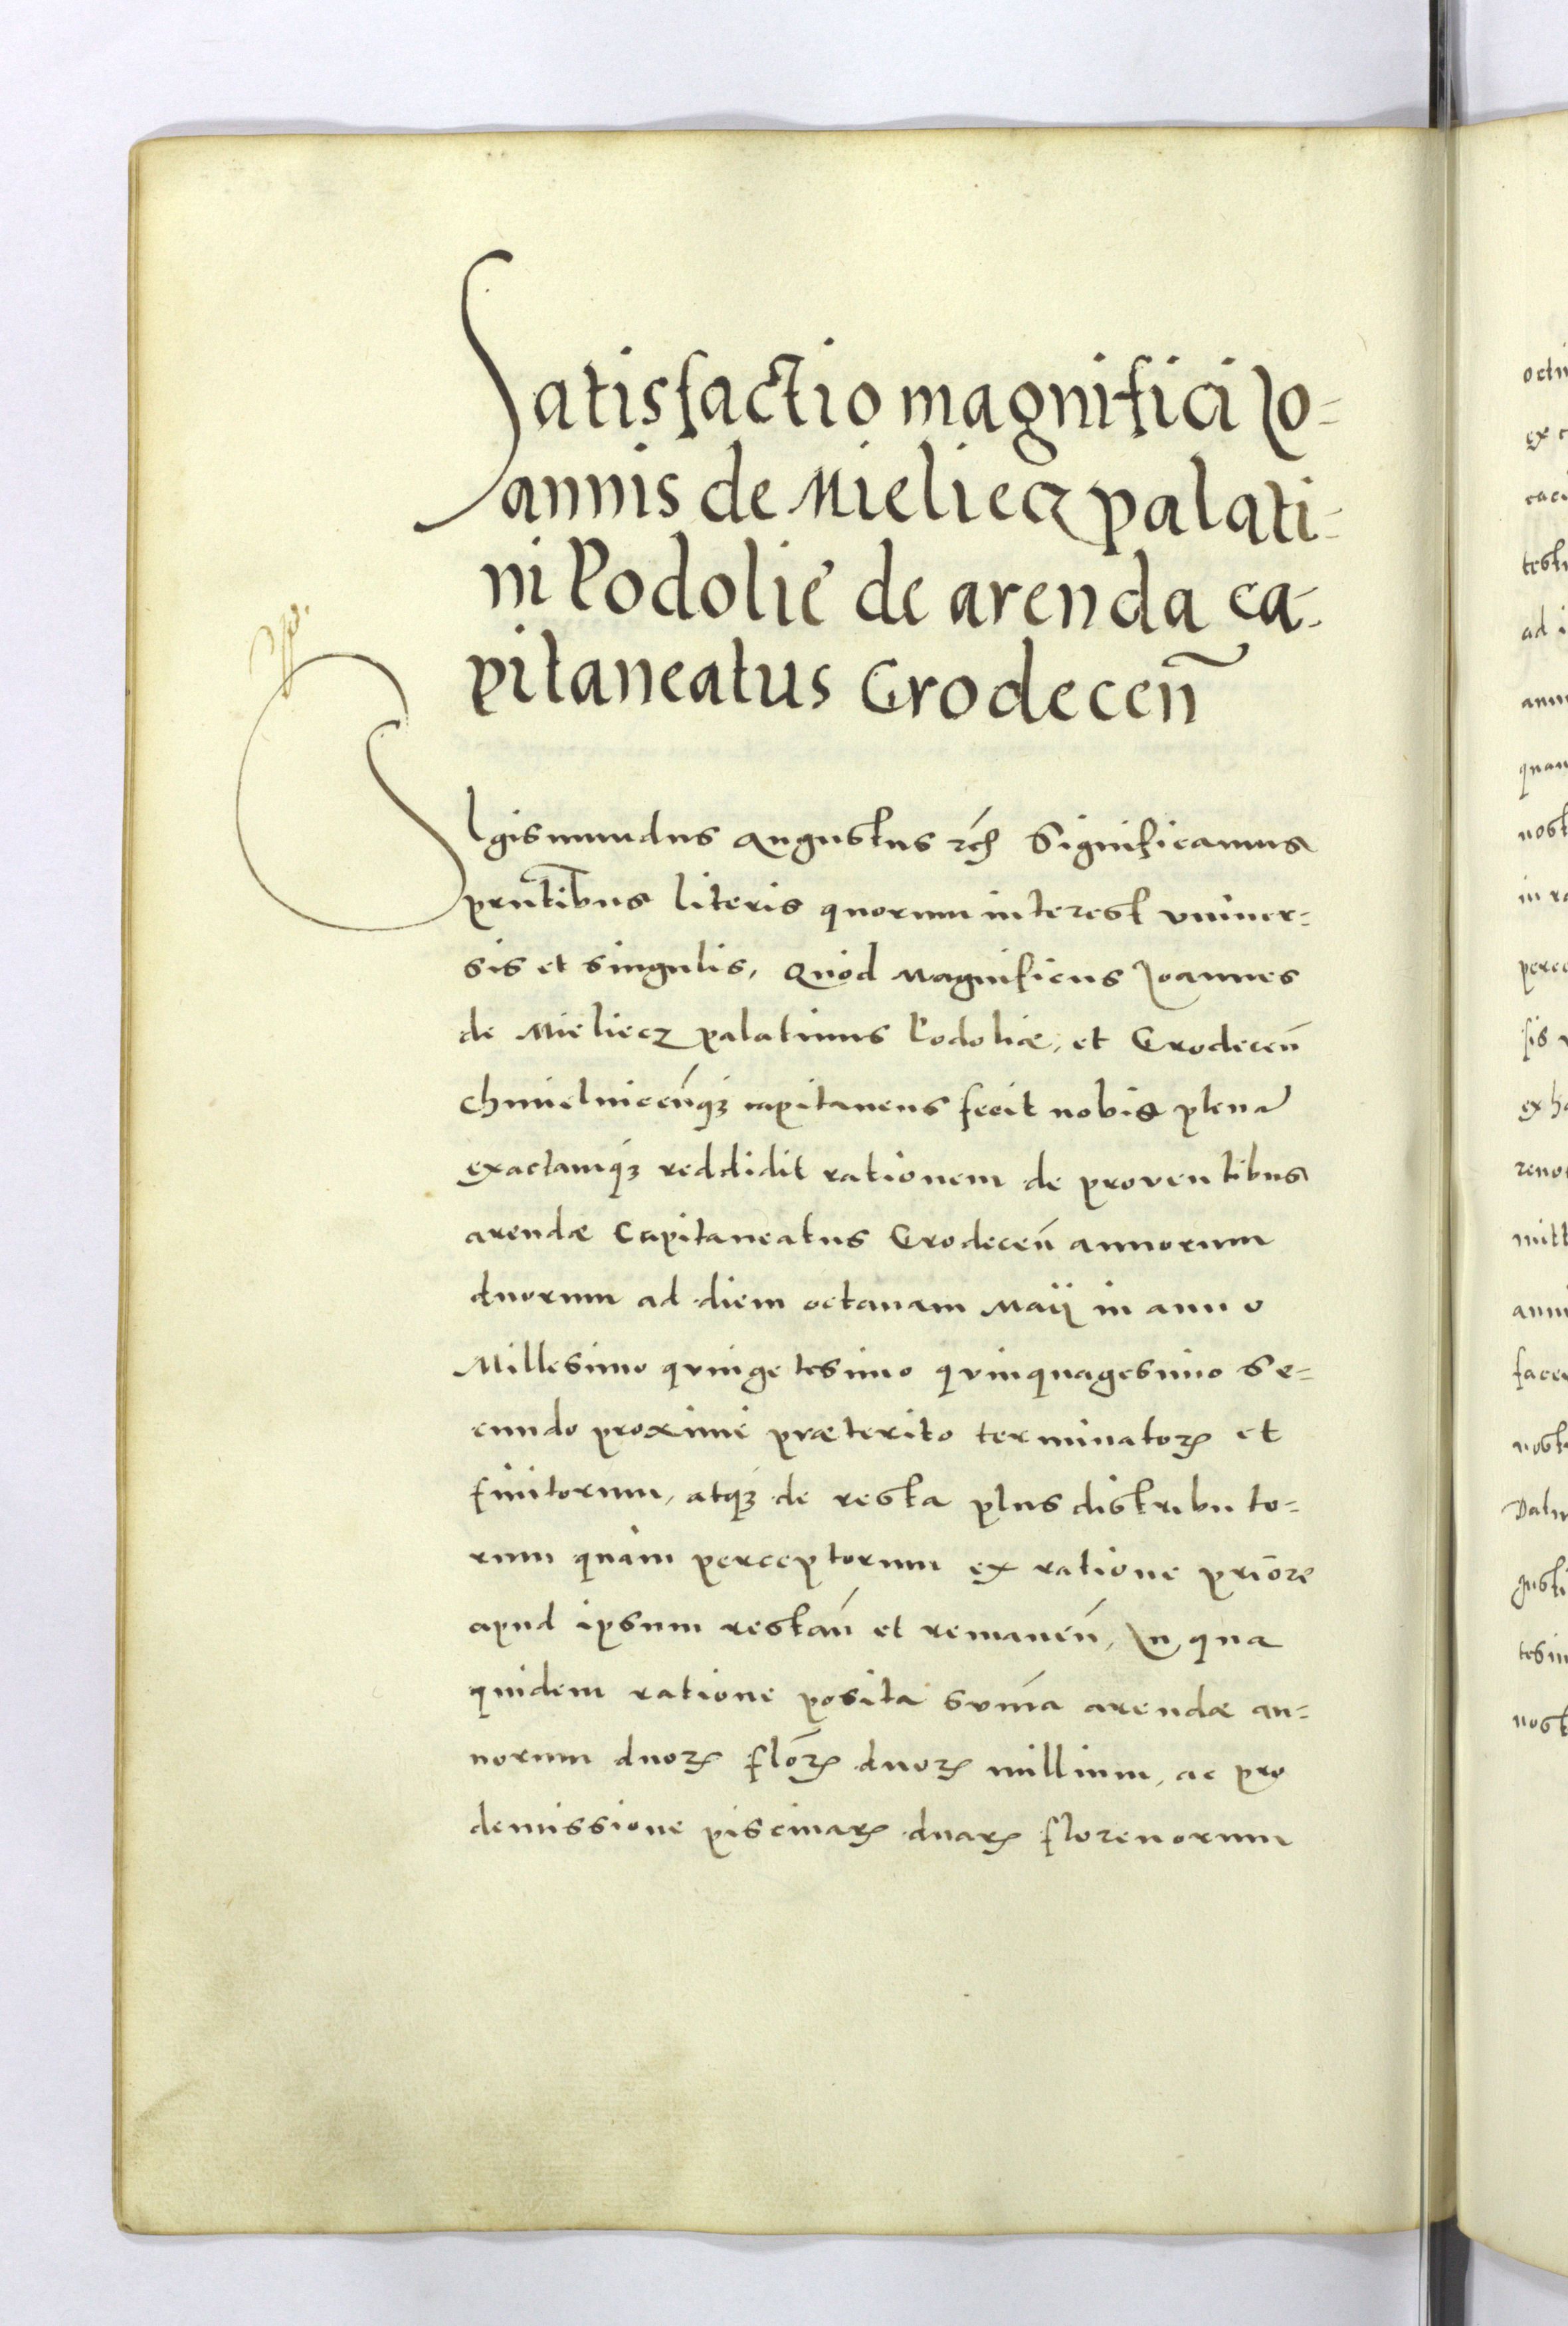 Satisfactio magnifici Io-
annis de Mieliecz palati-
ni Podolie de arenda ca-
pitaneatus Grodecen̄
SIgismundus Augustus rc̄ Significamus
prn̄tibus literis quorum interest vniuer-
sis et singulis, Quod Magnificus Ioannes
de Mieliecz palatinus Podoliæ, et Grodecen̄
Chmielnicen̄qꝫ capitaneus fecit nobis plenā
exactamqꝫ reddidit rationem de prouentibus
arendæ Capitaneatus Grodecen̄ annorum
duorum ad diem octauam Maij in anno
Millesimo quingētesimo quinquagesimo Se-
cundo proximè præterito terminatorꝝ et
finitorum, atqꝫ de resta plus distributo-
rum quàm perceptorum ex ratione priore
apud ipsum restan̄ et remanen̄, In qua
quidem ratione posita sum̄a arendæ an-
norum duorꝝ flo̅rꝝ duorꝝ millium, ac pro
demissione piscinarꝝ duarꝝ florenorum